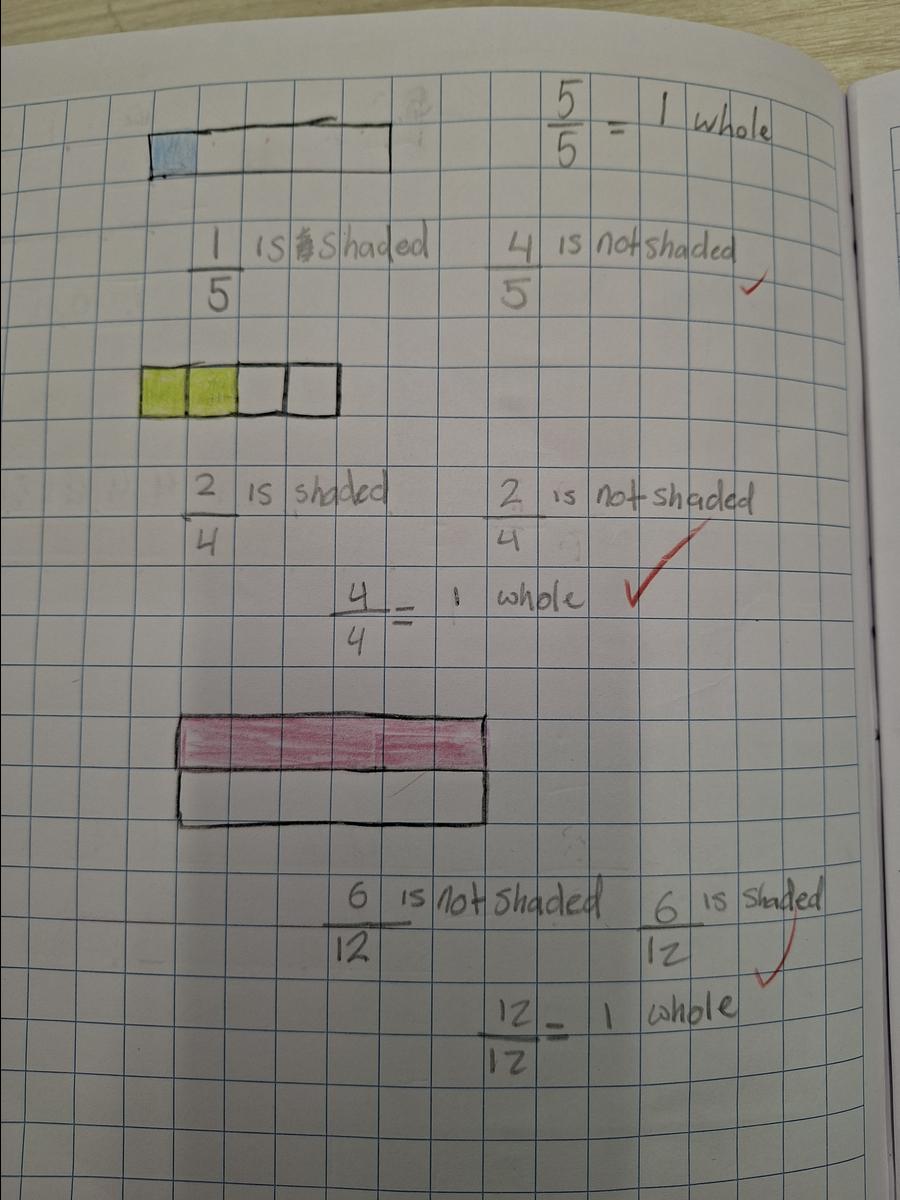 5/5 = 1 whole
1/5 is shaded 4/5 is not shaded
2/4 is shaded 2/4 is not shaded
4/4 = 1 whole
6/12 is not shaded 6/12 is shaded
12/12 = 1 whole